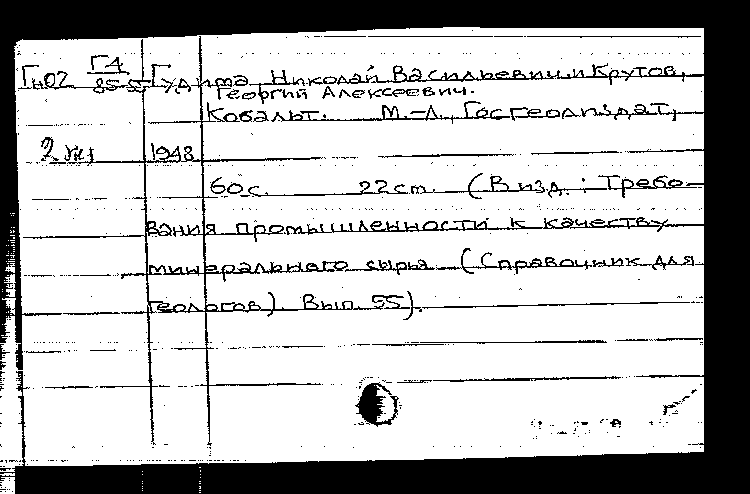 Гн02 Г4/85-55 Гудима, Николай Васильевич и Крутов,
Георгий Алексеевич.
Кобальт. М.-Л., Госгеолиздат,
2 1948
60 с. 22 cm. (В изд.: Требо-
вания промышленности к качеству
минерального сырья (Справочник для
геологов). Вып. 55).